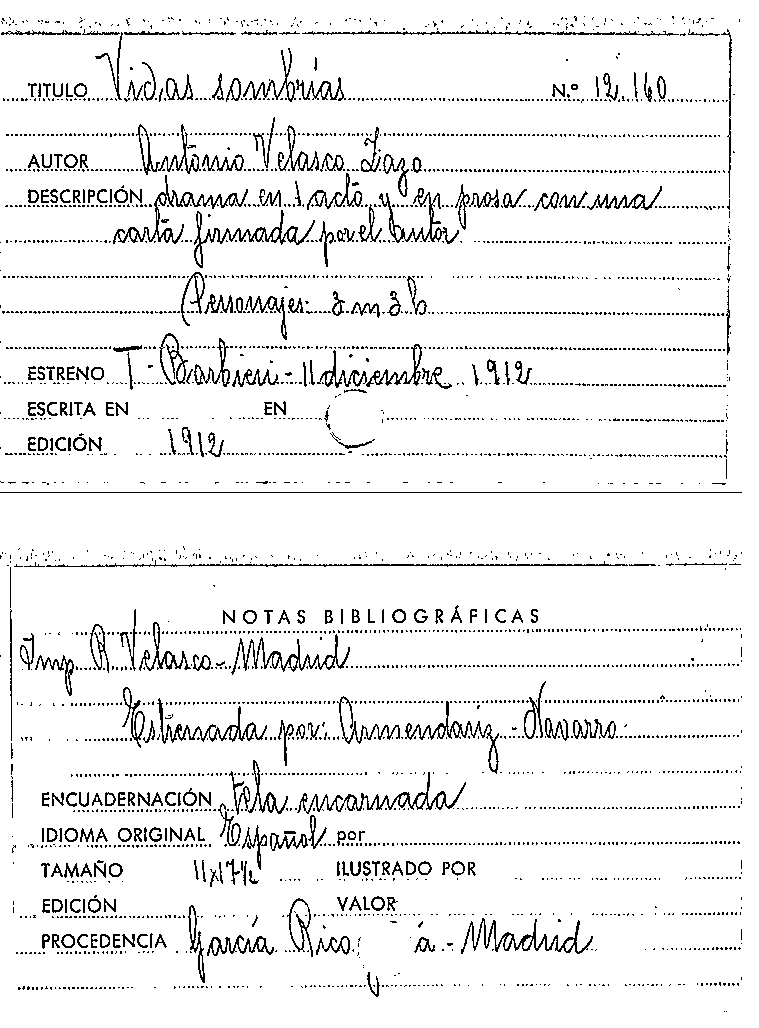 TITULO Vidas sombrías N.º 12.160
AUTOR Antonio Velasco Zazo
DESCRIPCIÓN drama en 1 acto y en prosa con una
carta firmada por el autor
Personajes: 3 m 3 h
ESTRENO T. Barbieri - 11 diciembre 1912
ESCRITA EN EN
EDICIÓN 1912
NOTAS BIBLIOGRÁFICAS
Imp. R. Velasco - Madrid
Estrenada por: Armendariz - Navarro
ENCUADERNACIÓN tela encarnada
IDIOMA ORIGINAL Español por
TAMAÑO 11x17½ ILUSTRADO POR
EDICIÓN VALOR
PROCEDENCIA García Rico - Madrid